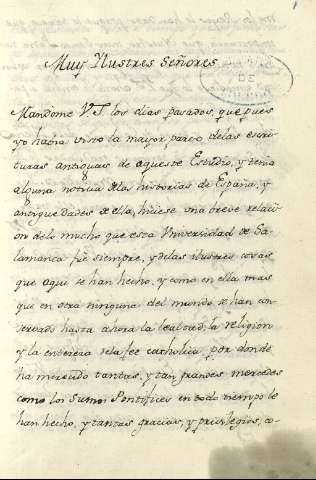 Muy Ilustres Señores
Mandome V.S. los dias pasados, que pues
yo havia visto la mayor parte delas escri-
turas antiguas de aqueste Estudio, y tenia
alguna noticia delas historias de España, y
antiguedades de ella, hiciese una breve relacion
de lo mucho que esta Universidad de Sa-
lamanca fue siempre, y delas ilustres cosas
que aqui se han hecho, y como en ella mas
que en otra ninguna del mundo se han con-
servado hasta ahora la lealtad, la religion
y la entereza dela fee catholica, por donde
ha merecido tantas, y tan grandes mercedes
como los Sumos Pontifices en todo tiempo le
han hecho, y tantas gracias, y privilegios, co-